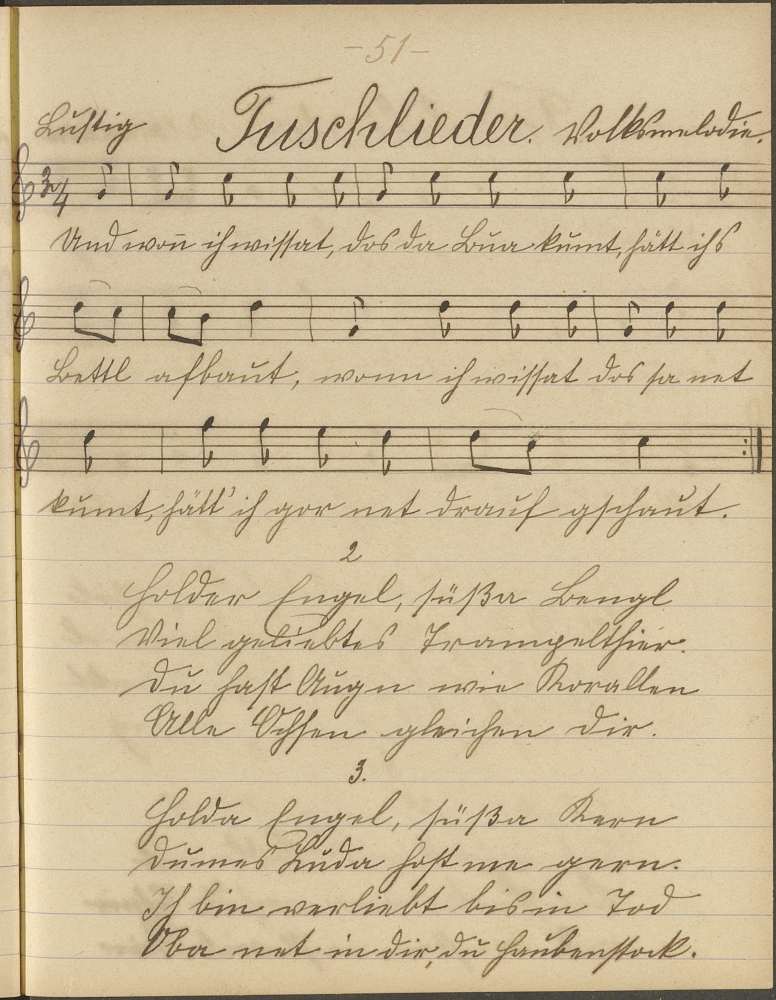 -51-
Lustig Tuschlieder. Volksmelodie.
3/4
Und won̄ ich wissat, dos da Bua kumt, hätt ichs
Bettl afbaut, wonn ich wissat dos sa net
kumt, hätt' ich gor net drauf gschaut.
2
Holder Engel, süßa Bengl
Viel geliebtes Trampelthier.
Du hast Augn wie Korallen
Alle Ochsen gleichen dir.
3.
Holda Engel, süßa Kern
dumes Luda host me gern.
Ich bin verliebt bis in Tod
Oba net in dir, du Haubenstock.